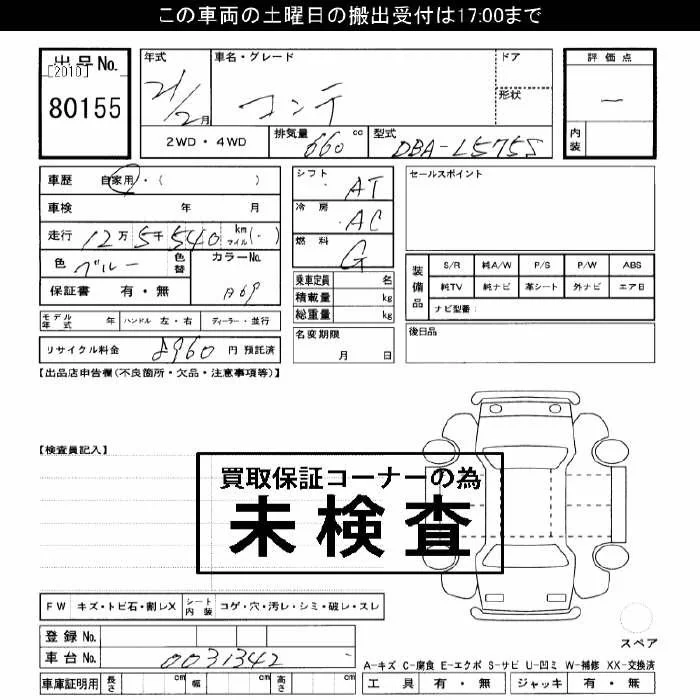 この車両の土曜日の搬出受付は17:00まで
出品No.
[2010]
80155
年式 21/2月
車名・グレード コンテ
ドア
形状
評価点
内装
2WD・4WD
排気量 660 cc
型式 DBA-L575S
車歴 自家用・( )
車検 年 月
走行 12万5千540 km マイル(・)
色 ブルー 色替
カラーNo. B69
保証書 有・無
シフト AT
冷房 AC
燃料 G
乗車定員 名
積載量 kg
総重量 kg
セールスポイント
装備品
S/R 純A/W P/S P/W ABS
純TV 純ナビ 革シート 外ナビ エアB
ナビ型番:
モデル年式 年 ハンドル 左・右 ディーラー・並行
名変期限 月 日
後日品
リサイクル料金 8960 円 預託済
【出品店申告欄(不良箇所・欠品・注意事項等)】
【検査員記入】
買取保証コーナーの為
未検査
FW キズ・トビ石・割レX
シート内装 コゲ・穴・汚レ・シミ・破レ・スレ
スペア
登録No.
車台No. 0031342
A-キズ C-腐食 E-エクボ S-サビ U-凹ミ W-補修 XX-交換済
車庫証明用 長さ cm 幅 cm 高さ cm
工具 有・無 ジャッキ 有・無